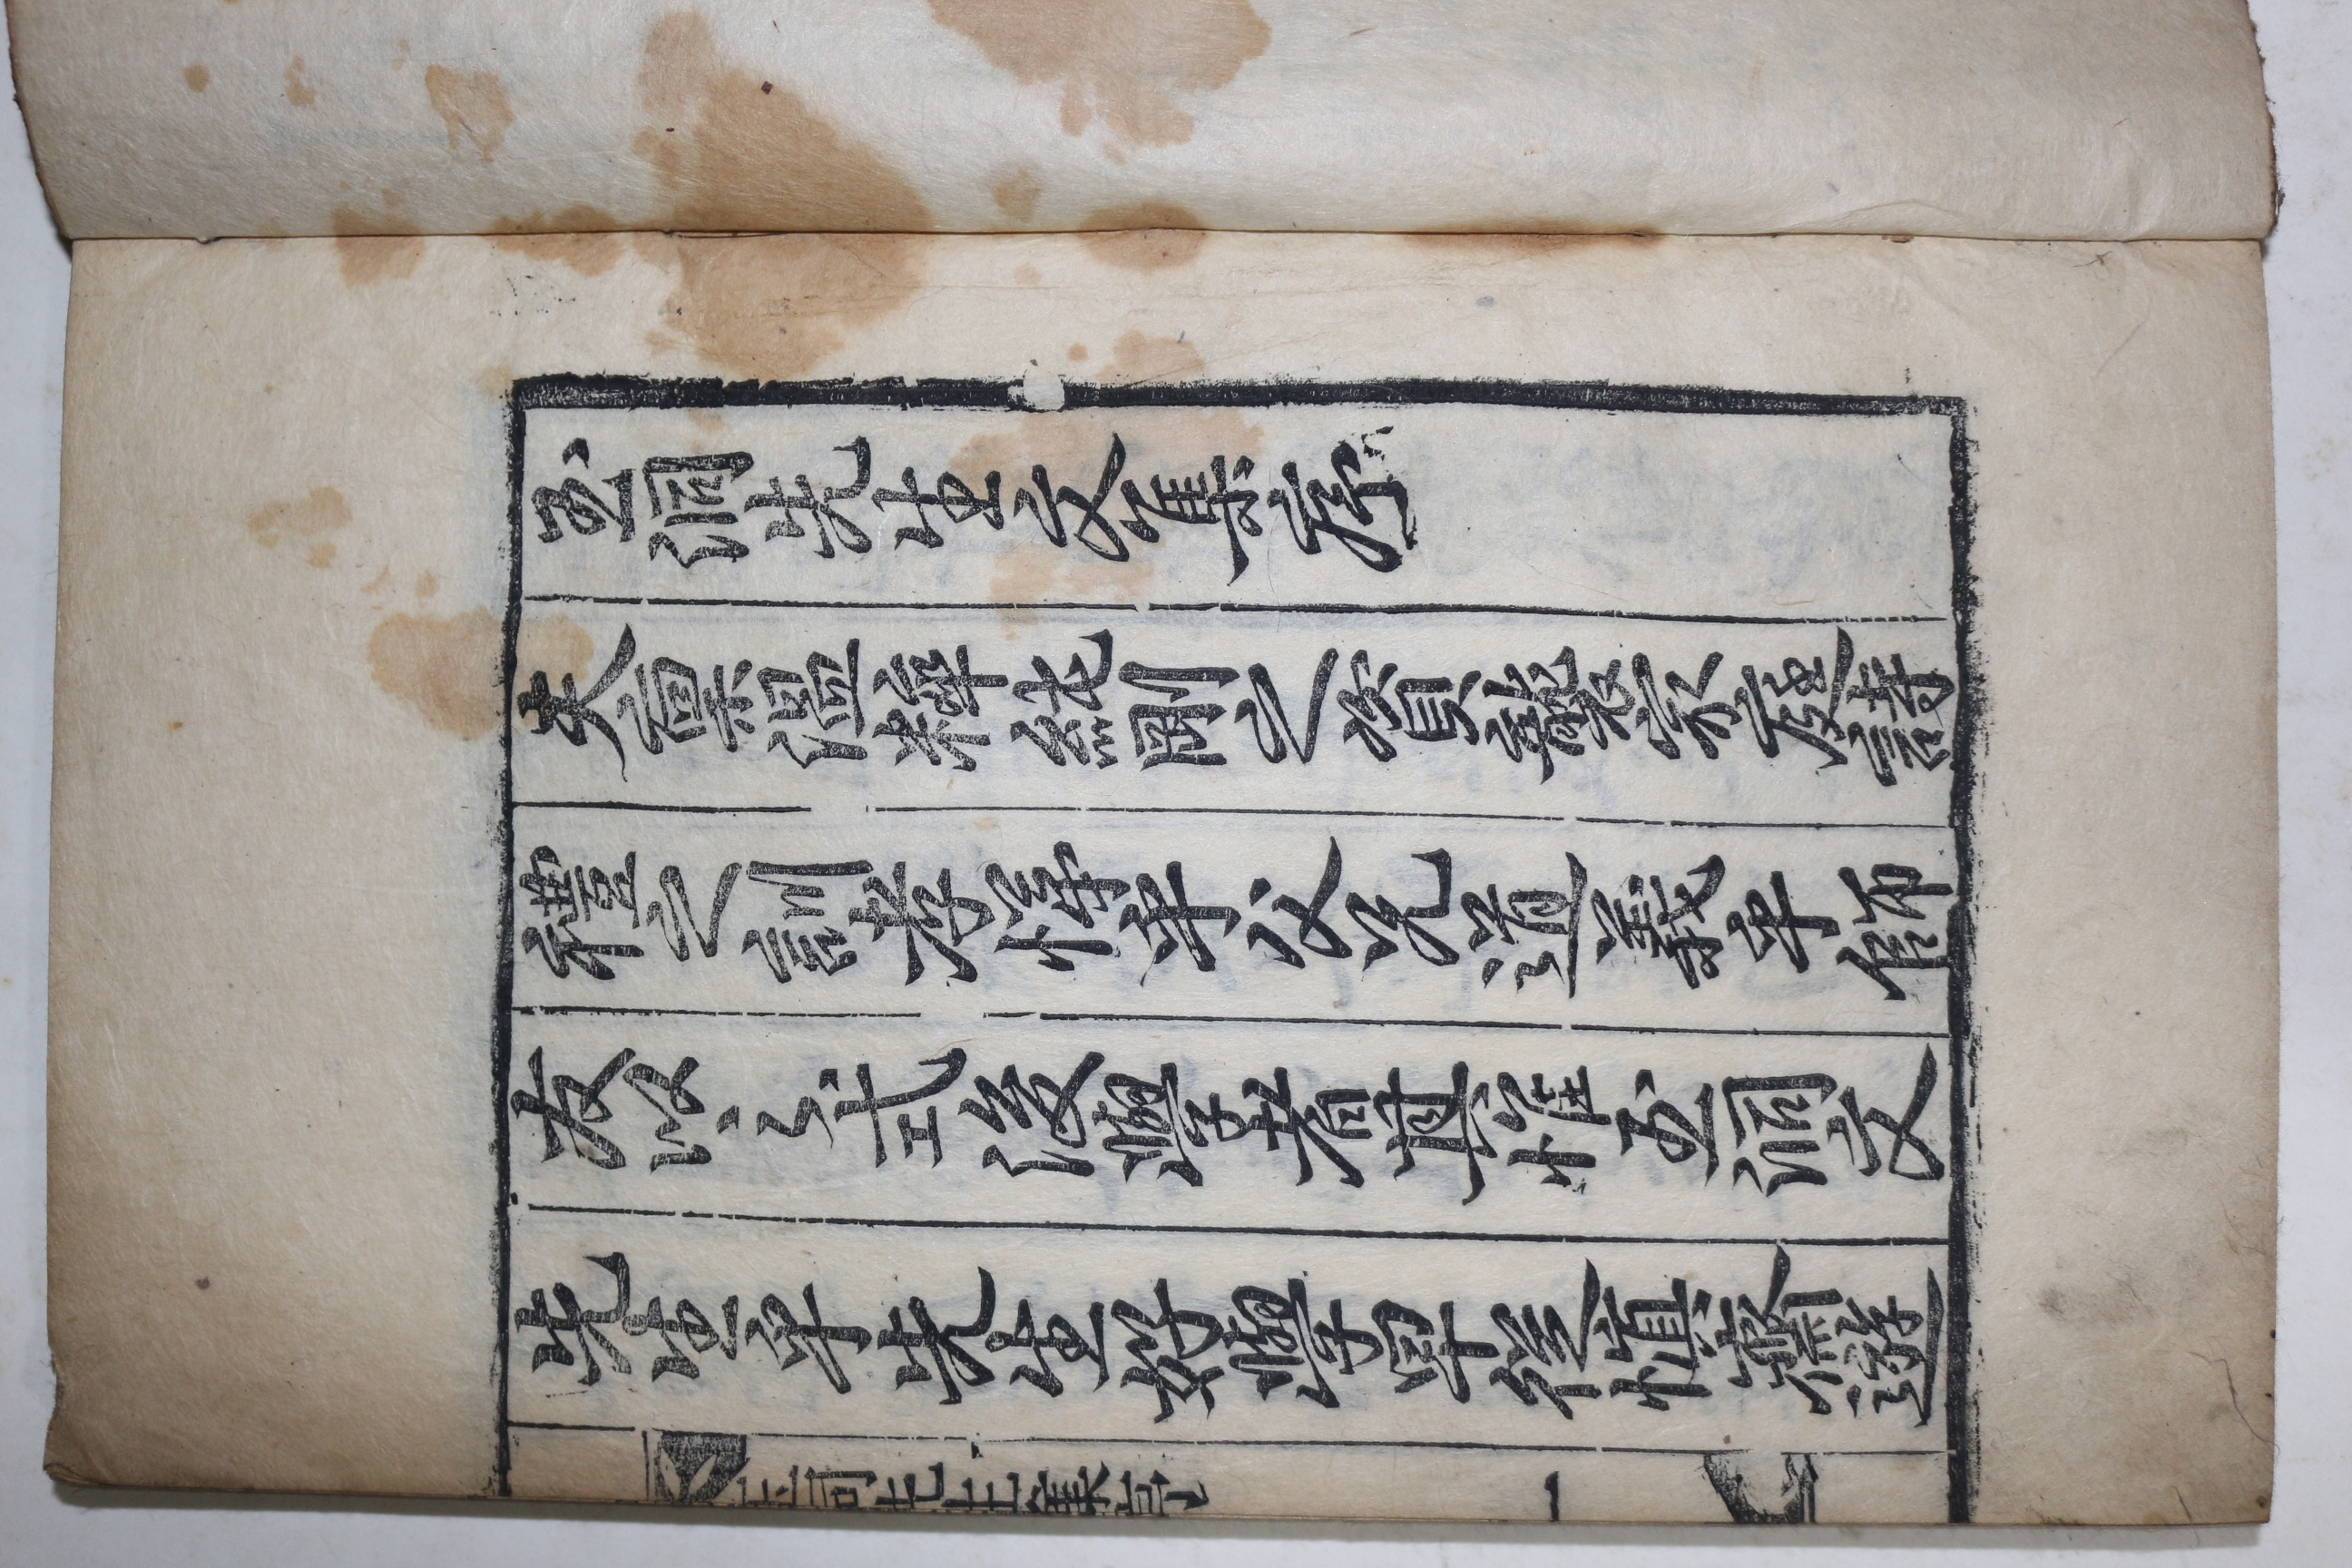 玉洞先生文集序
夫稟溫粹純剛之資襲家庭詩
禮之訓孝悌乎父兄道義乎師
友以之式後學者其惟玉洞文
先生乎先生好學早從愼齋遊
洞先生集序
一